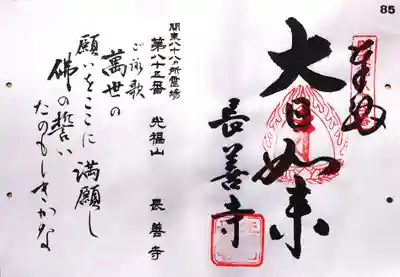 85
奉拝
大日如来
長善寺
関東八十八ヵ所霊場
第八十五番 光福山 長善寺
ご詠歌
萬世の
願いをここに満願し
佛の誓い
たのもしきかな